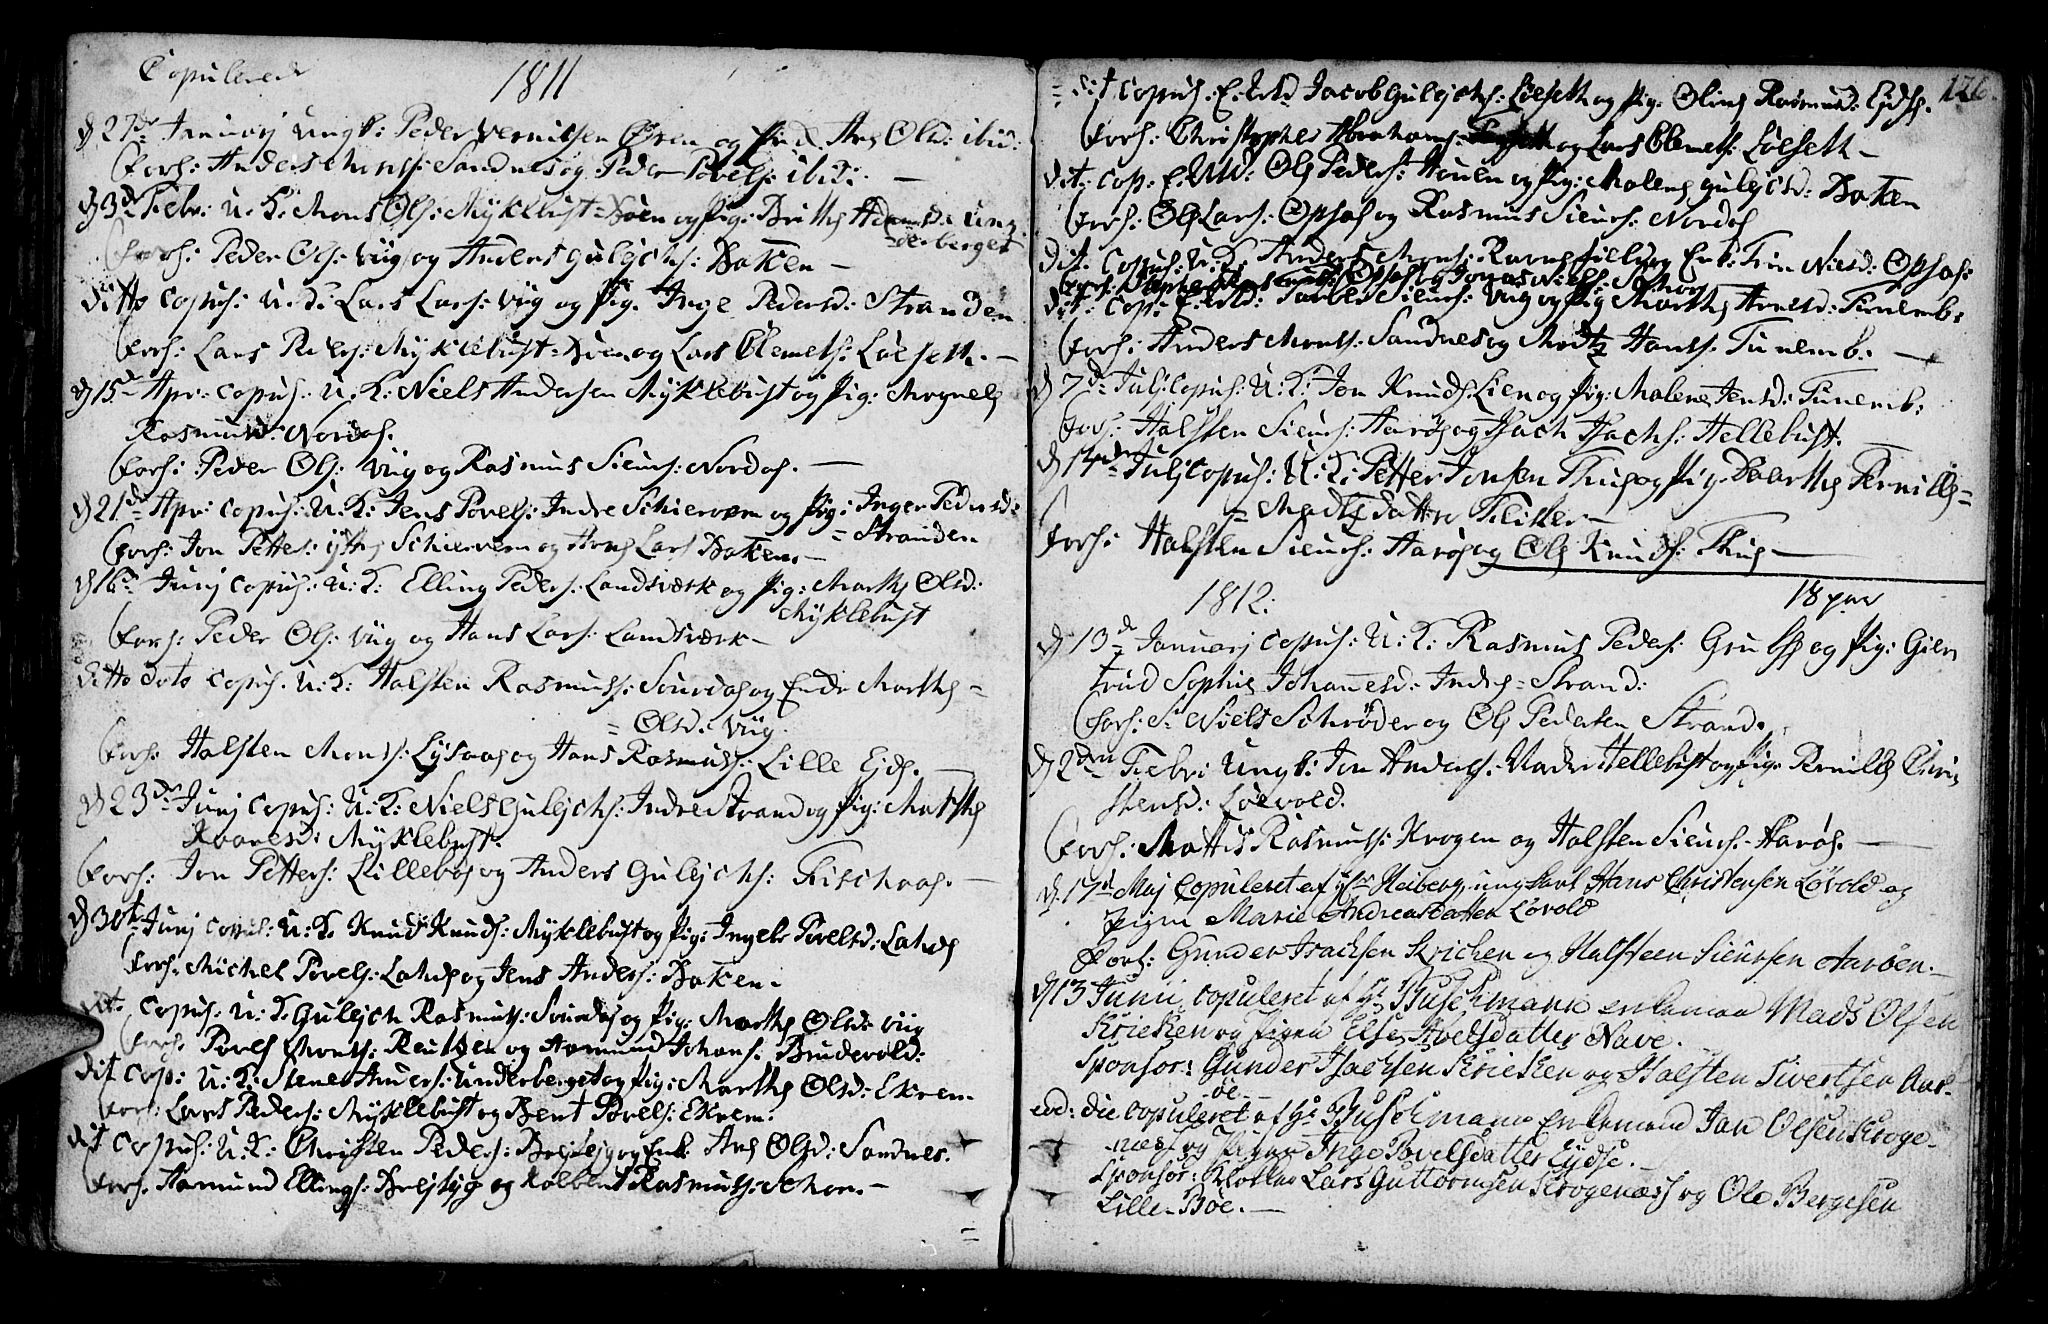 Copulerede 1811
d 27de Januarj Ungk: Peder Vernitsen Øren og Pig. Ane Olsd: ibid:
forl: Anders Mons: Sandnes og Peder Povels: ibid: —
d 3de Febr: U: K: Mons Ols: Myklebust = Bøen og Pig: Brithe Adamsd: Un=
=derberget
forl: Peder Ols: Viig og Anders Gulichs: Bakken —
ditto Copul: U: K: Lars Lars: Viig og Pig. Inge Pedersd: Stranden
forl: Lars Peders: Myklebust = Bøen og Lars Clemets: Løeseth. —
d 15de Apr: copul: U. K: Niels Andersen Myklebust og Pig: Magnele
Rasmusd: Nordas.
forl: Peder Ols: Viig og Rasmus Sieurs: Nordas. —
d 21de Apr: copul: U: K: Jens Povels: Indre Schiervem og Pig: Inger Pedersd:
= Stranden
forl: Jon Petters: ytre Schiervem og Hans Lars Bakken. —
d 16de Junj copul: U: K: Elling Peders: Landsværk og Pig: Marthe Olsd:
Myklebust
forl: Peder Ols: Viig og Hans Lars: Landsværk —
Ditto dato copul. U: K: Halsten Rasmuss: Souras og Enke Marthe =
= Olsd: Viig.
forl: Halsten Mons: Lysaas og Hans Rasmuss: Lille Ejde. —
d 23de Junj copul: U: K: Niels Gulichs: Indre Strand og Pig: Marthe
Kaaresd: Myklebust.
forl: Jon Petters: Lillebøe og Anders Gulichs: Fischaas. —
d 30te Junj copul: U: K. Knud Knuds: Myklebust og Pig: Ingebr Povelsd: Lande
forl: Michel Povels: Lande og Jens Anders: Bakken.
dit. copul: U: K Gulich Rasmuss: Souras og Pig: Marthe Olsd: Viig
forl: Povel Mons: Reutsen og Aamund Johans: Bruderold:
dit Cop: U: K: Stener Anders: Underberget og Pig: Marthe Olsd: Ekren.
forl: Lars Peders: Myklebust og Bent Povels: Ekrem.
dit copul: U: K: Christen Peders: Brejteig og Enk: Ane Olsd: Sandnes.
forl. Aamund Ellings: Brejteig og Kolbent Rasmuss: Schou. —
126.
dit copul: E. Md Jacob Gulichs: Løeseth og Pig. Oline Rasmusd: Ejde.
forl: Christopher Abrahams: og Lars Clemets: Løeseth —
dit: cop: E. Md: Ole Peders: Houen og Pig: Malene Gulicsd: Bakken
forl: Ole Lars: Opsal og Rasmus Sieurs: Nordas
dit: copul: U: K. Anders Mons: og Enk: Trin Nielsd: Opsal:
forl: Opsal og Jonas Niels: Schou
dit: cop: E. Md: Sieurs: Viig og Pig Marthe Arnesd: Tunemb:
forl: Anders Mons: Sandnes og Hans. Tunemb: —
d 7de Julj copul: U: K: Jon Knuds: Lien og Pig: Malene Jensd: Tunemb:
forl: Halsten Sieurs: Harøe og Isach Isachs: Hellebust. —
d 14de Julj copul: U: K: Petter Jonsen Thue og Pig. Pernille =
= Madtzdatter —
forl: Halsten Sieurs: Harøe og Ole Knuds: Thue —
1812: 18 par
d 13de Januarj copul: U: K: Rasmus Peders: og Pig: Gier
trud Sophie Johannesd: Indre = Strand:
forl: Sr Niels Schrøder og Ole Pedersen Strand.
d 2den Febr: Ungk: Jon Anders: Nadre Hellebust og Pig: Pernille Chri
stensd: Løevold.
forl: Mattis Rasmuss: Krogen og Halsten Sieurs: Harøe. —
d. 17de Maj Copuleret af Hr Heiberg, ungkarl Hans Christensen Løvold og
Pigen Marie Andreasdatter Lovold
forl: Gunder Isachsen Kricken og Halsteen Sieursen Aarøen. —
d 13 Junii, copuleret af Hr. Buschmann enkeman Mads Olsen
Kricken og Pigen Else Avelsdatter Nave. —
Sponsor: Gunder Isachsen Kricken og Halsten Sivertsen Aar-
öe. —
eod: die copuleret af Hr. Buschmann Enkemand Jan Olsen Kroge-
næs og Pigen Inge Povelsdatter Eydse. —
Sponsor: Klokker Lars Guttormsen Krogenæss og Ole Bergesen
Lille-Böe. —